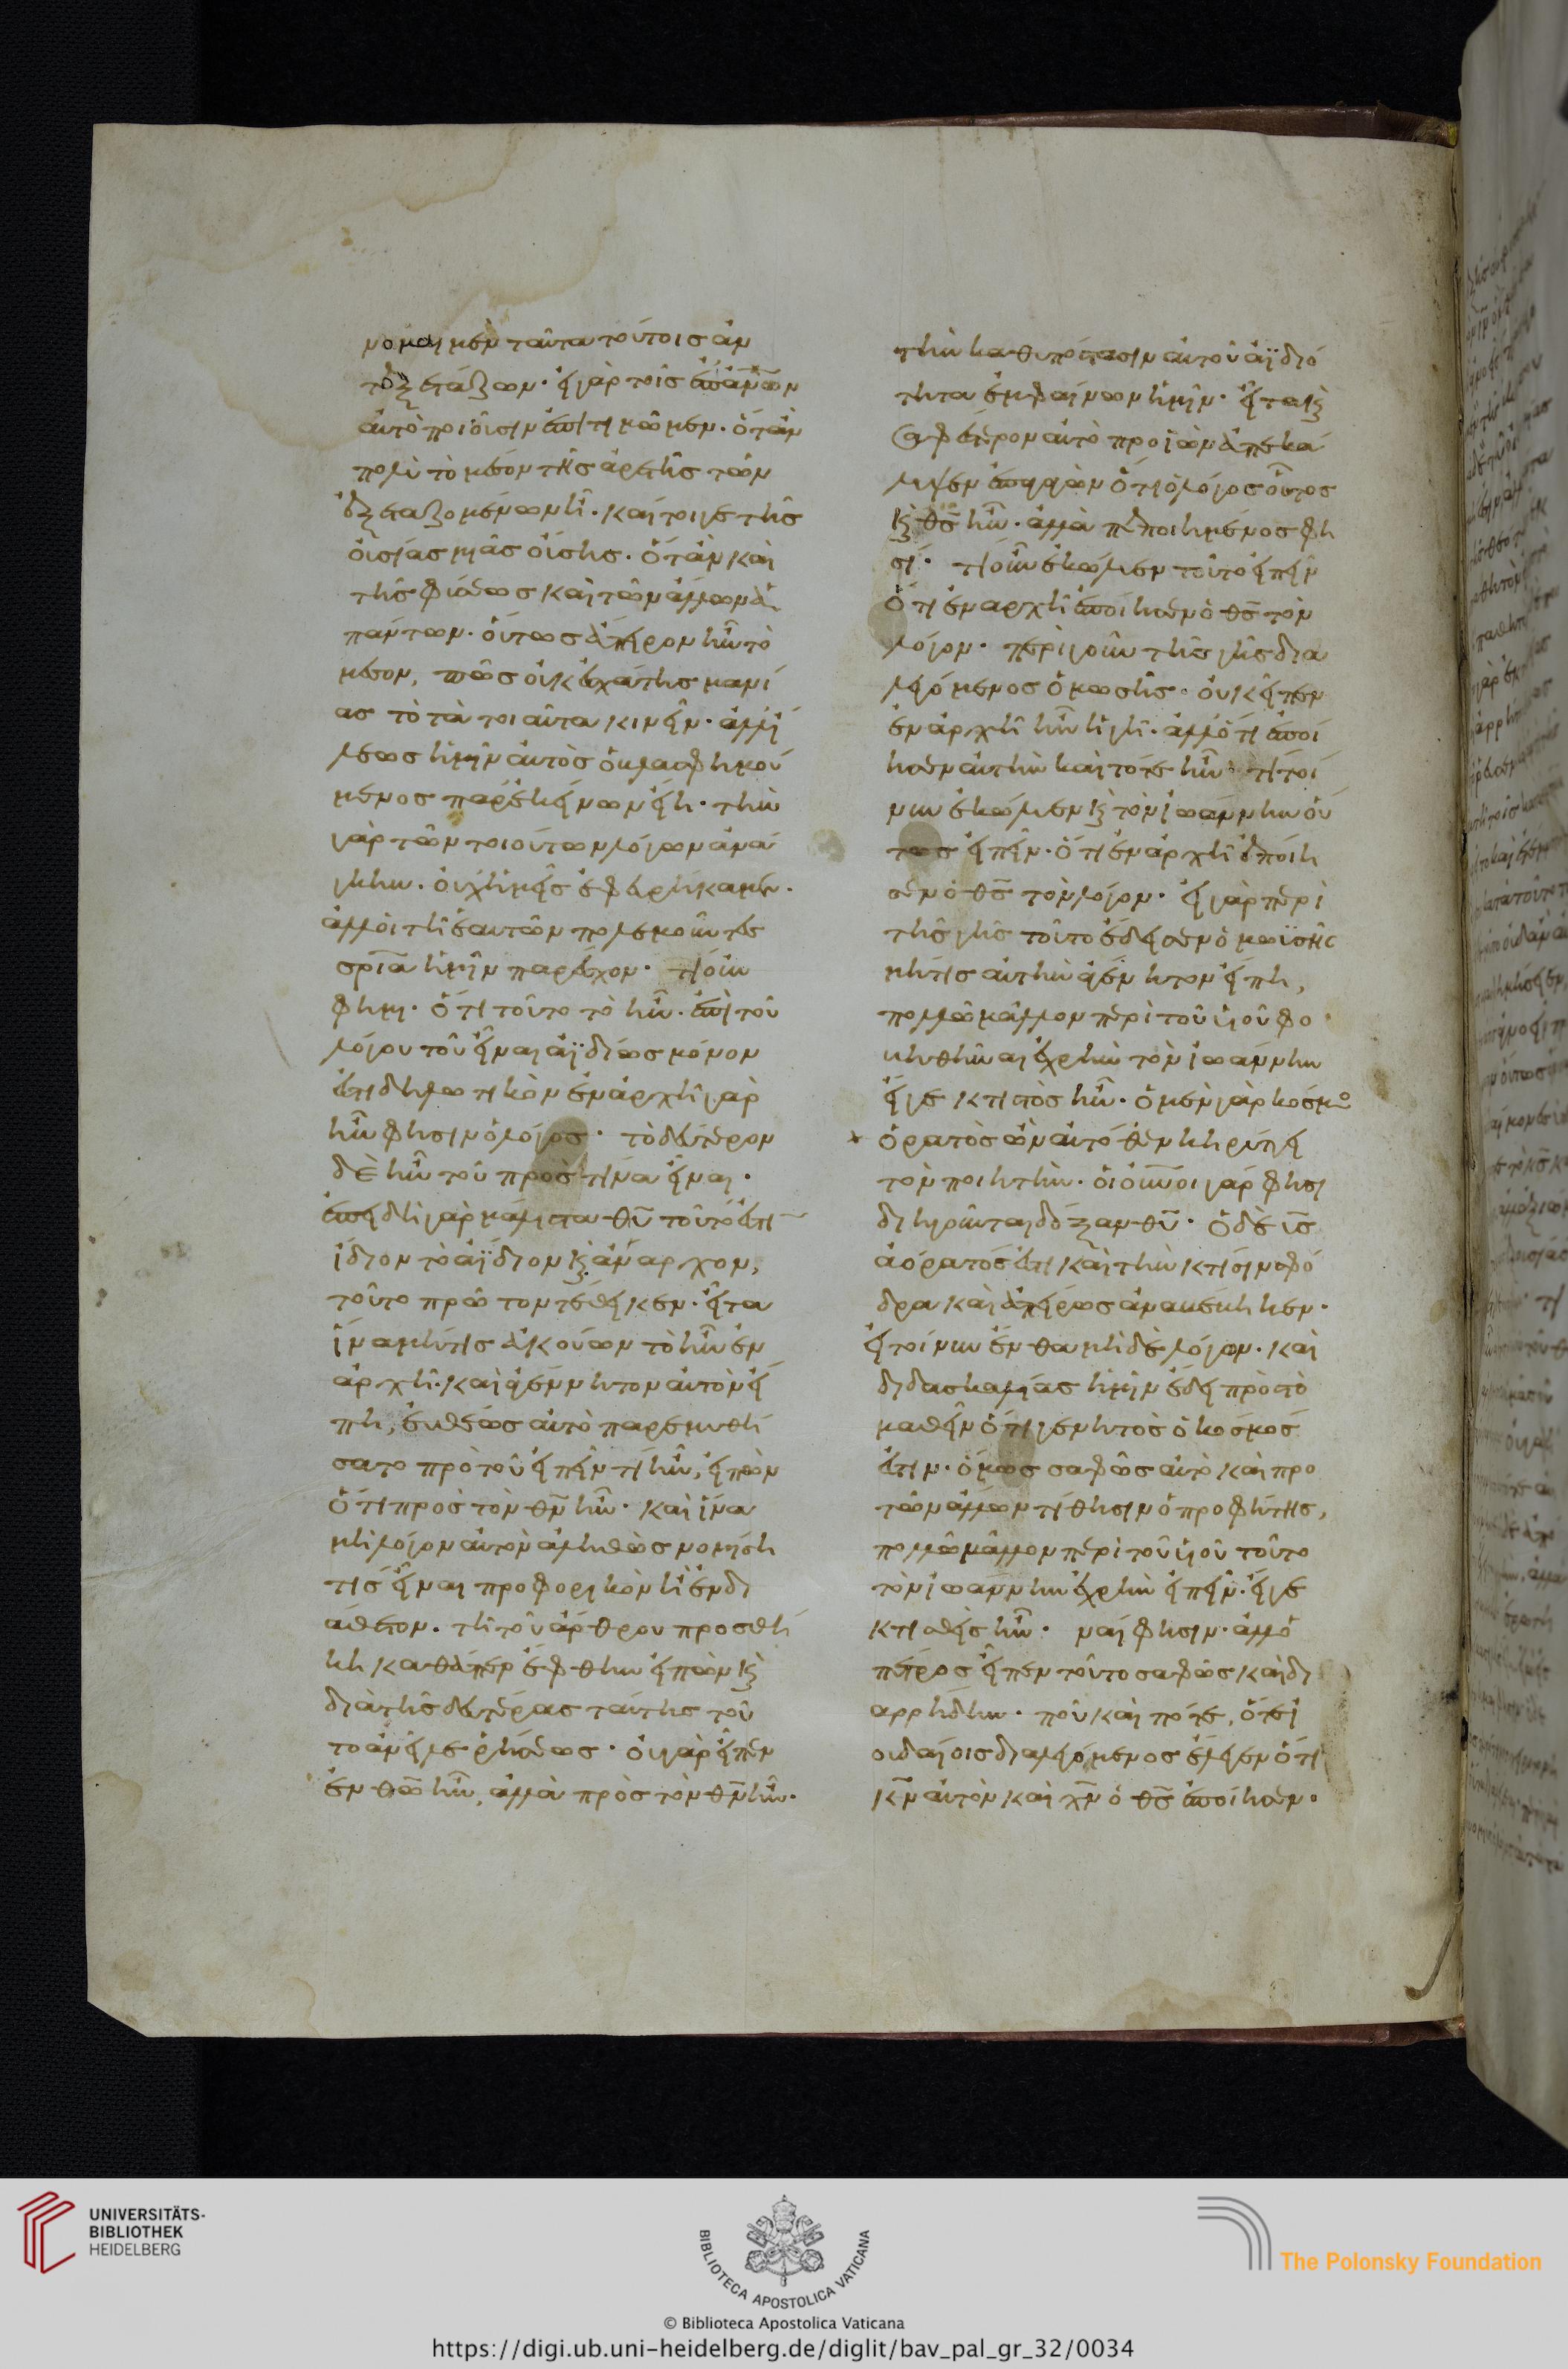 νομαι μὲν ταῦτα τούτοις ἀν
τεξετάζων· εἰ γὰρ τοῖς ἐπ' ἀν̅ων
αὐτὸ ποιοῦσιν ἐπιτιμῶμεν· ὅταν
πολὺ τὸ μέσον τῆς ἀρετῆς τῶν
ἐξεταζομένων ἦ· καίτοιγε τῆς
οὐσίας μιᾶς οὔσης· ὅταν καὶ
τῆς φύσεως καὶ τῶν ἄλλων ἁ
πάντων· οὕτως ἄπειρον ἦν τὸ
μέσον, πῶς οὐκ ἐσχάτης μανί
ας τὸ τὰ τοιαῦτα κινεῖν· ἀλλ' ἵ
λεως ἡμῖν αὐτὸς ὁ βλασφημού
μενος παρ' ἐκείνων εἴη· τὴν
γὰρ τῶν τοιούτων λόγων ἀνά
γκην· οὐχ ἡμεῖς ἐφευρήκαμεν·
ἀλλ' οἱ τῆ ἑαυτῶν πολεμοῦντες
σρ̅ία ἡμῖν παρέσχον· τί οὖν
φημι· ὅτι τοῦτο τὸ ἦν· ἐπὶ τοῦ
λόγου τοῦ εἶναι ἀϊδίως μόνον
ἐστὶ δηλωτικὸν ἐν ἀρχῆ γὰρ
ἦν φησιν ὁ λόγος· τὸ δεύτερον
δὲ ἦν τοῦ πρός τινα εἶναι·
ἐπειδὴ γὰρ μάλιστα θυ̅ τοῦτό ἐστι
ἴδιον τὸ ἀΐδιον κ̀ ἄναρχον,
τοῦτο πρῶτον τέθεικεν· εἶτα
ἵνα μή τις ἀκούων τὸ ἦν ἐν
ἀρχῆ· καὶ ἀγέννητον αὐτὸν εἴ
πη, εὐθέως αὐτὸ παρεμυθή
σατο πρὸ τοῦ εἰπεῖν τί ἦν, εἰπὼν
ὅτι πρὸς τὸν θν̅ ἦν· καὶ ἵνα
μὴ λόγον αὐτὸν ἀληθῶς νομίση
τις εἶναι προφορικὸν ἢ ἐνδι
άθετον· τῆ τοῦ ἄρθρου προσθή
κη καθάπερ ἔφθην εἰπὼν κ̀
διὰ τῆς δευτέρας ταύτης τοῦ
το ἀνεῖλε ῥήσεως· οὐ γὰρ εἶπεν
ἐν θω̅ ἦν, ἀλλὰ πρὸς τὸν θν̅ ἦν·
τὴν καθ' ὑπόστασιν αὐτοῦ ἀϊδιό
τητα ἐμφαίνων ἡμῖν· εἶτα κ̀
σαφέστερον αὐτὸ προϊὼν ἀπεκά
λυψεν ἐπαγαγὼν ὅτι ὁ λόγος οὗτος
κ̀ θς̅ ἦν· ἀλλὰ πεποιημένος φη
σί· τί οὖν ἐκώλυεν τοῦτο εἰπεῖν
ὅτι ἐν ἀρχῆ ἐποίησεν ὁ θς̅ τὸν
λόγον· περὶ γοῦν τῆς γῆς δια
λεγόμενος ὁ μωσῆς· οὐκ εἶπεν
ἐν ἀρχῆ ἦν ἡ γῆ· ἀλλ' ὅτι ἐποί
ησεν αὐτὴν καὶ τότε ἦν· τί τοί
νυν ἐκώλυεν κ̀ τὸν ἰωάννην οὕ
τως εἰπεῖν· ὅτι ἐν ἀρχῆ ἐποίη
σεν ὁ θς̅ τὸν λόγον· εἰ γὰρ περὶ
τῆς γῆς τοῦτο ἔδεισεν ὁ μωϋσῆς
μή τις αὐτὴν ἀγένητον εἴπη,
πολλῶ μᾶλλον περὶ τοῦ υἱοῦ φο
βηθῆναι ἐχρῆν τὸν ἰωάννην
εἴγε κτιστὸς ἦν· ὁ μὲν γὰρ κόσμο
ὁρατὸς ὢν αὐτόθεν κηρύττει
τὸν ποιητήν· οἱ οὐν̅οι γάρ φησι
διηγοῦνται δόξαν θυ̅· ὁ δὲ υς̅
ἀόρατός ἐστι καὶ τὴν κτίσιν σφό
δρα καὶ ἀπείρως ἀναβέβηκεν·
εἰ τοίνυν ἔνθα μὴ δὲ λόγων· καὶ
διδασκαλίας ἡμῖν ἔδει πρὸς τὸ
μαθεῖν ὅτι γενητὸς ὁ κόσμος
ἐστίν· ὅμως σαφῶς αὐτὸ καὶ πρὸ
τῶν ἄλλων τίθησιν ὁ προφήτης,
πολλῶ μᾶλλον περὶ τοῦ υἱοῦ τοῦτο
τὸν ἰωάννην ἐχρῆν εἰπεῖν· εἴγε
κτισθεὶς ἦν· ναί φησιν· ἀλλ' ὁ
πέτρος εἶπεν τοῦτο σαφῶς καὶ δι
αρρήδην· ποῦ καὶ πότε, ὅτε ἰ
ουδαίοις διαλεγόμενος ἔλεγεν ὅτι
κν̅ αὐτὸν καὶ χν̅ ὁ θς̅ ἐποίησεν·
UNIVERSITÄTS-
BIBLIOTHEK
HEIDELBERG
BIBLIOTECA APOSTOLICA VATICANA
The Polonsky Foundation
© Biblioteca Apostolica Vaticana
https://digi.ub.uni-heidelberg.de/diglit/bav_pal_gr_32/0034